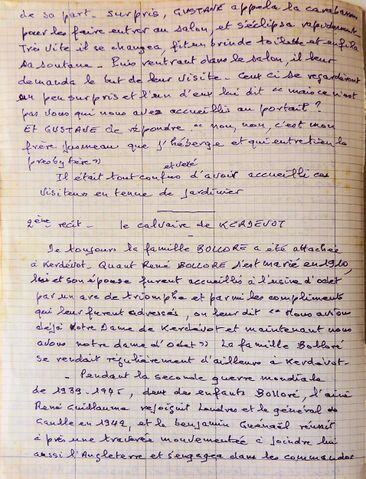 de sa part. Surpris, GUSTAVE appela la
pour les faire entrer au salon, et s'éclipsa rapidement.
Très vite il se changea, fit un brin de toilette et enfila
sa soutane. Puis rentrant dans le salon, il leur
demanda le but de leur visite. Ceux ci se regardèrent
un peu surpris et l'un d'eux lui dit "mais ce n'est
pas vous qui nous avez accueillis au portail ?
Et GUSTAVE de répondre. "non, non, c'est mon
frère jumeau que j'héberge et qui entretien le
presbytère"
Il était tout confus d'avoir accueilli ces
et vexé
visiteurs en tenue de jardinier
2ème récit - le calvaire de KERDEVOT
De toujours la famille BOLLORE a été attachée
à Kerdévot. Quant René BOLLORE s'est marié en 1910,
lui et son épouse furent accueillis à l'usine d'odet
par un arc de triomphe et parmi les compliments
qui leur furent adressés, on leur dit "Nous avions
déjà Notre Dame de Kerdévot et maintenant nous
avons notre dame d'Odet" La famille Bolloré
se rendait régulièrement d'ailleurs à Kerdévot.
- Pendant la seconde guerre mondiale
de 1939-1945, deux des enfants Bolloré, l'ainé
René Guillaume rejoignit Londres et le général de
Gaulle en 1942, et le benjamin Gwénaël réussit
après une traversée mouvementée à joindre lui
aussi l'Angleterre et s'engagea dans les commandos